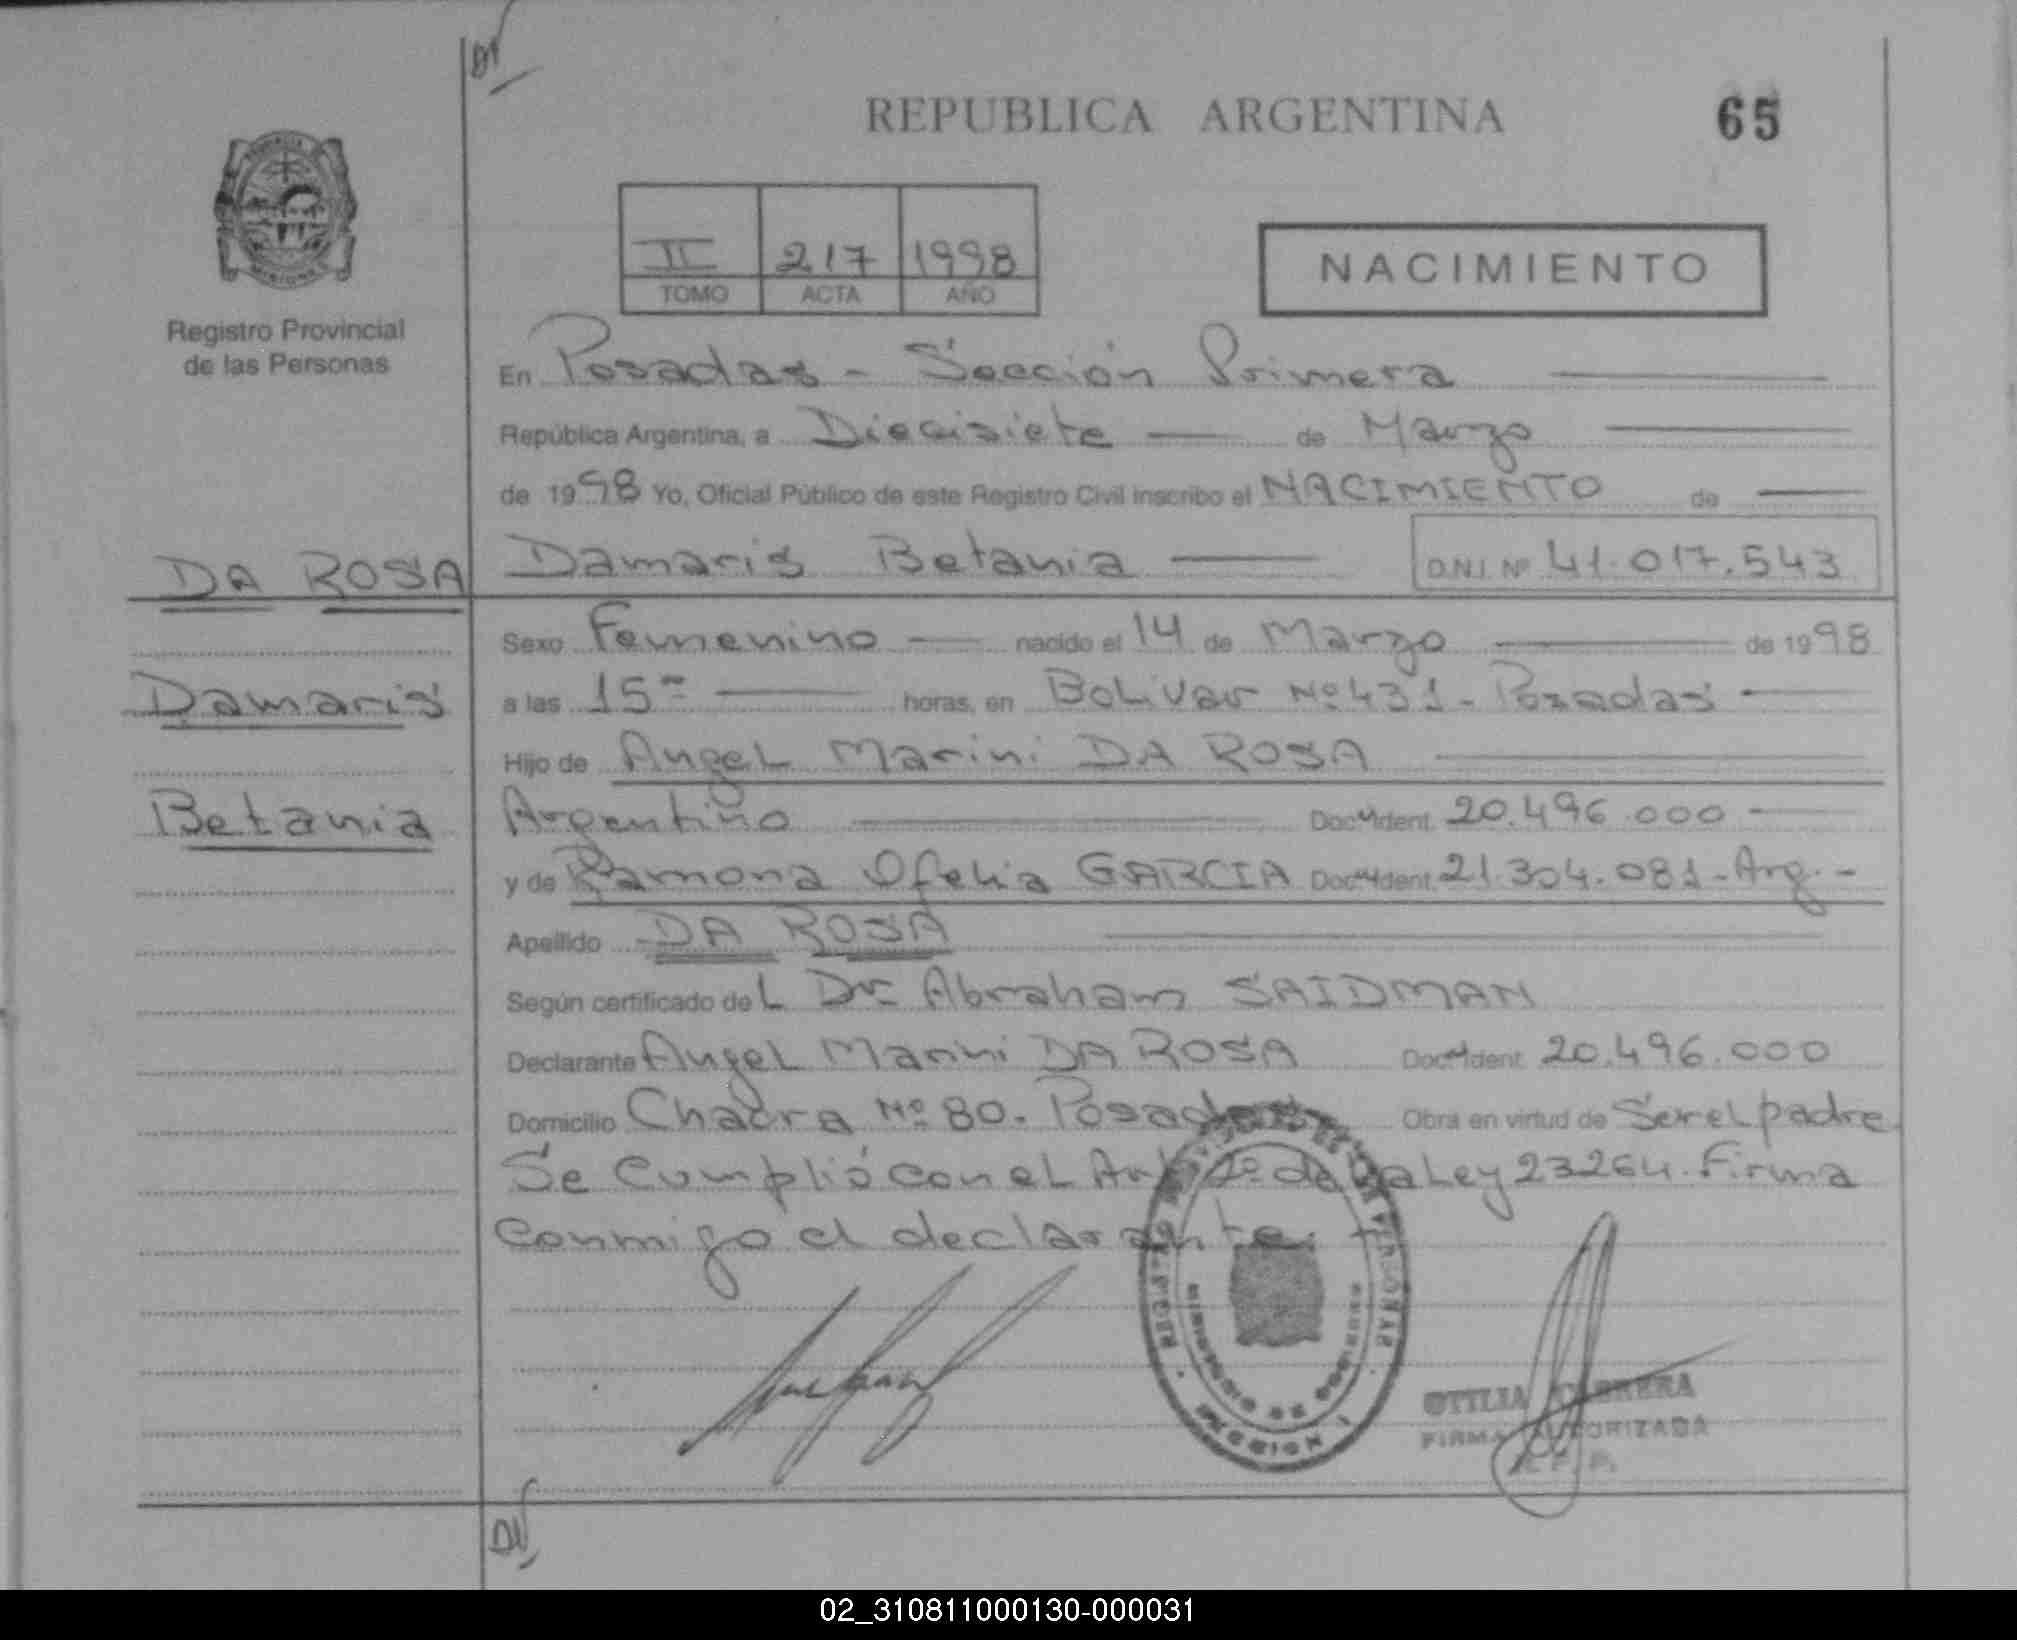 REPUBLICA ARGENTINA
65
II 217 1998
TOMO ACTA AÑO
NACIMIENTO
Registro Provincial
de las Personas
En Posadas - Sección Primera
República Argentina, a Diecisiete de Marzo
de 1998 Yo, Oficial Público de este Registro Civil inscribo el NACIMIENTO de
DA ROSA Damaris Betania D.N.I. Nº 41.017.543
Sexo Femenino nacido el 14 de Marzo de 1998
Damaris
a las 15 horas, en Bolivar Nº 431 - Posadas
Hijo de Angel Marini DA ROSA
Betania
Argentino Doc. Ident. 20.496.000
y de Ramona Ofelia GARCIA Doc. Ident. 21.304.081 - Arg. -
Apellido DA ROSA
Según certificado del Dr. Abraham SAIDMAN
Declarante Angel Marini DA ROSA Doc. Ident. 20.496.000
Domicilio Chacra Nº 80. Posadas Obra en virtud de Ser el padre
Se Cumplió con el Art. de la Ley 23264. Firma
conmigo el declarante.
OTILIA CABRERA
FIRMA AUTORIZADA
02_310811000130-000031